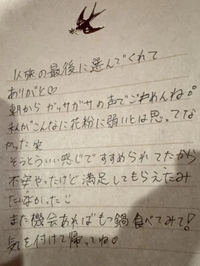 の最後に選んでくれて
ありがと♡
朝からガッサガサの声でごめんね
私がこんなに花粉に弱いとは思ってな
かった
そうとういい感じですすめられてたから
不安やったけど満足してもらえたみ
たい
また機会あればもつ鍋食べてみて!
気を付けて帰ってね